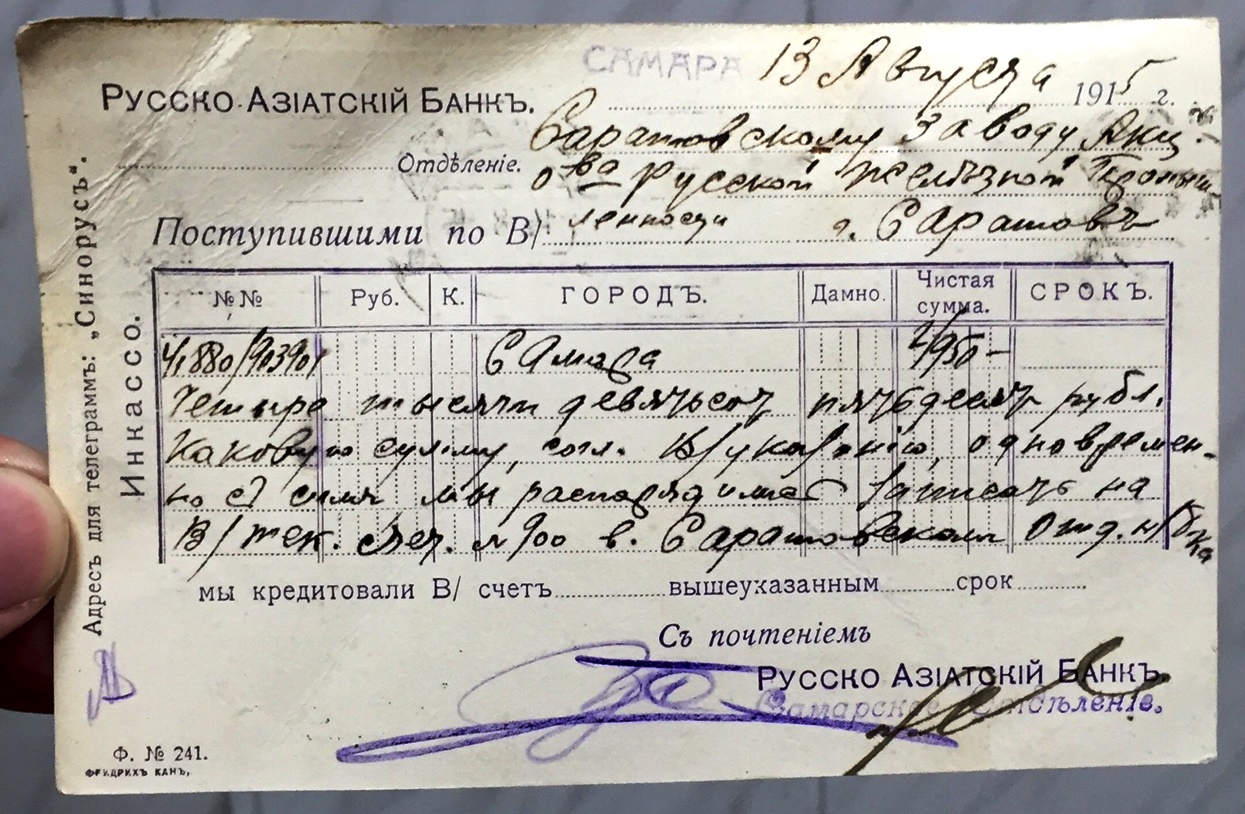 САМАРА 13 Августа 1915 г.
Русско-Азіатскій Банкъ.
Саратовскому заводу Акц.
Отдѣленіе.
о-ва Русской Желѣзной Промыш
ленности г. Саратовъ
Поступившими по В/
№№ Руб. К. ГОРОДЪ. Дамно. Чистая сумма. СРОКЪ.
41880/903901 Самара 4950 –
Четыре тысячи девятьсот пятьдесят рубл.
Каковую сумму, согл. В/указанію, одновремен-
но с сим мы распорядились записать на
В/тек. счет. № 900 в. Саратовском Отд. н/Б-ка
мы кредитовали В/ счетъ вышеуказанным срок
Съ почтеніемъ
Русско Азіатскій Банкъ.
Самарское Отдѣленіе.
Инкассо.
Адресъ для телеграммъ: „Синорусъ".
Ф. № 241.
ФРИДРИХЪ КАНЪ,